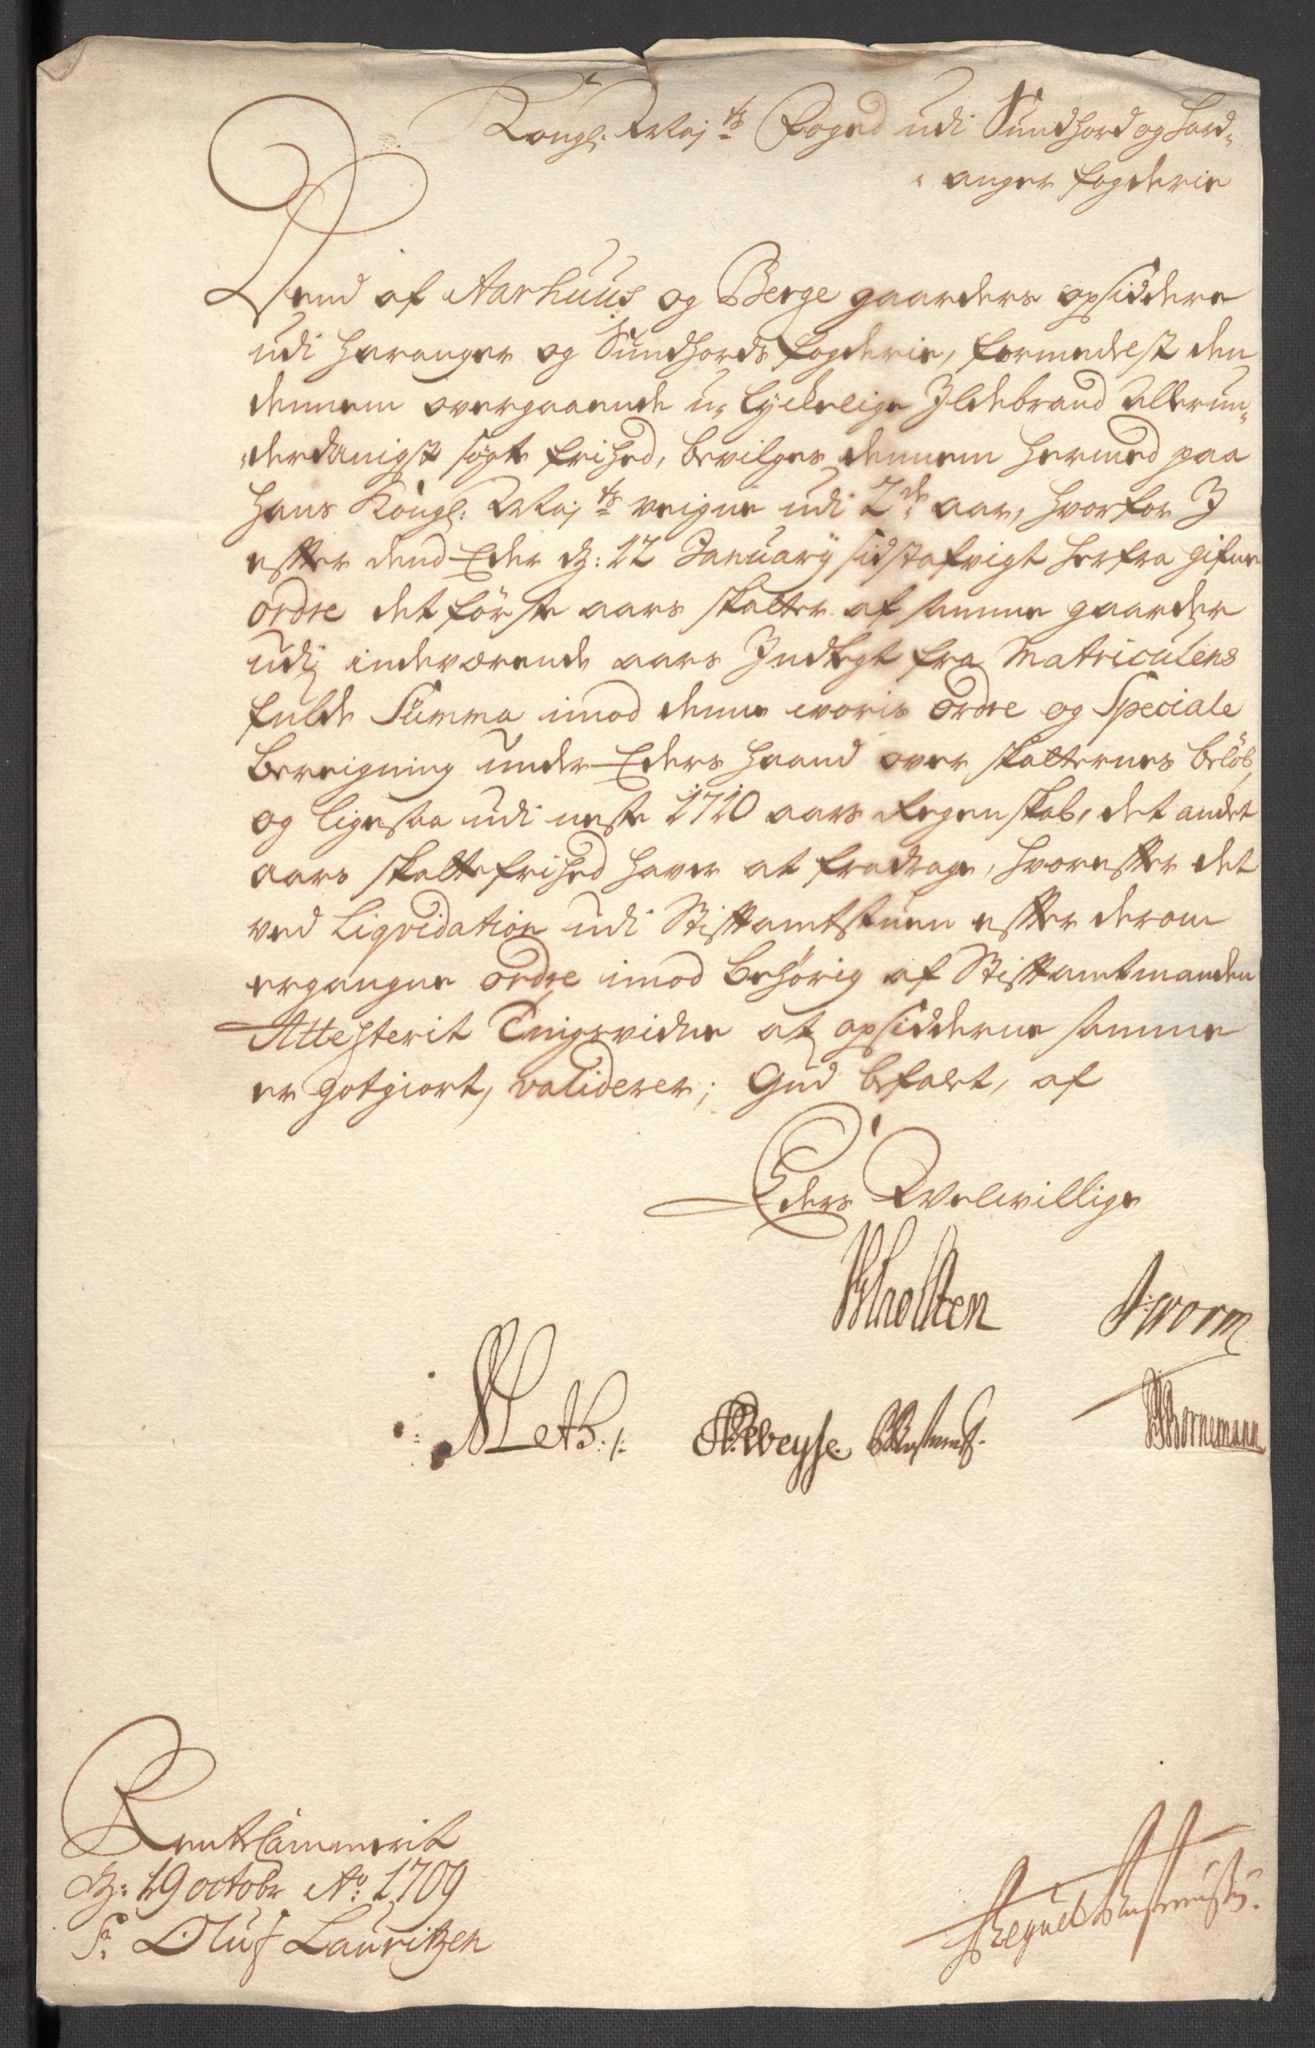 Kongl: Maj:ts Foged udi Sundhord og Hard-
anger fogderie
Dend af Aarhuus og Berge gaarders opsiddere
udi Haranger og Sundhords fogderie, formedelst den
dennem overgaaende u-lyckelige Ildebrand Allerun-
derdanigst søgte frihed, bevilges dennem hermed paa
Hans Kongl: Maj:ts veigne udi 2de aar, hvorfor I
efter dend Eder d: 12 January sidstafvigt herfra gifne
ordre det første aars skatter af samme gaarder
udj indeværende aars Indtegt fra Matriculens
fulde Summa imod denne woris ordre og Speciale
Bereigning under Eders Haand over skatternes beløb,
og ligesaa udi neste 1710 aars Regenskab, det andet
aars skattefrihed haver at fradrage, hvorefter det
ved Liqvidation udi Stiftamtstuen efter derom
ergangne ordre imod behørig af Stiftamtmanden
Attesterit Tingsvidne at opsidderne samme
er gotgiort, validerer; Gud befalet, af
Eders Velwillige
Scholten Worm
Meth:/: Weyse Bornemann
RenteCammerit
d: 19 octobr Ao: 1709
Sr. Oluf Lauritzen